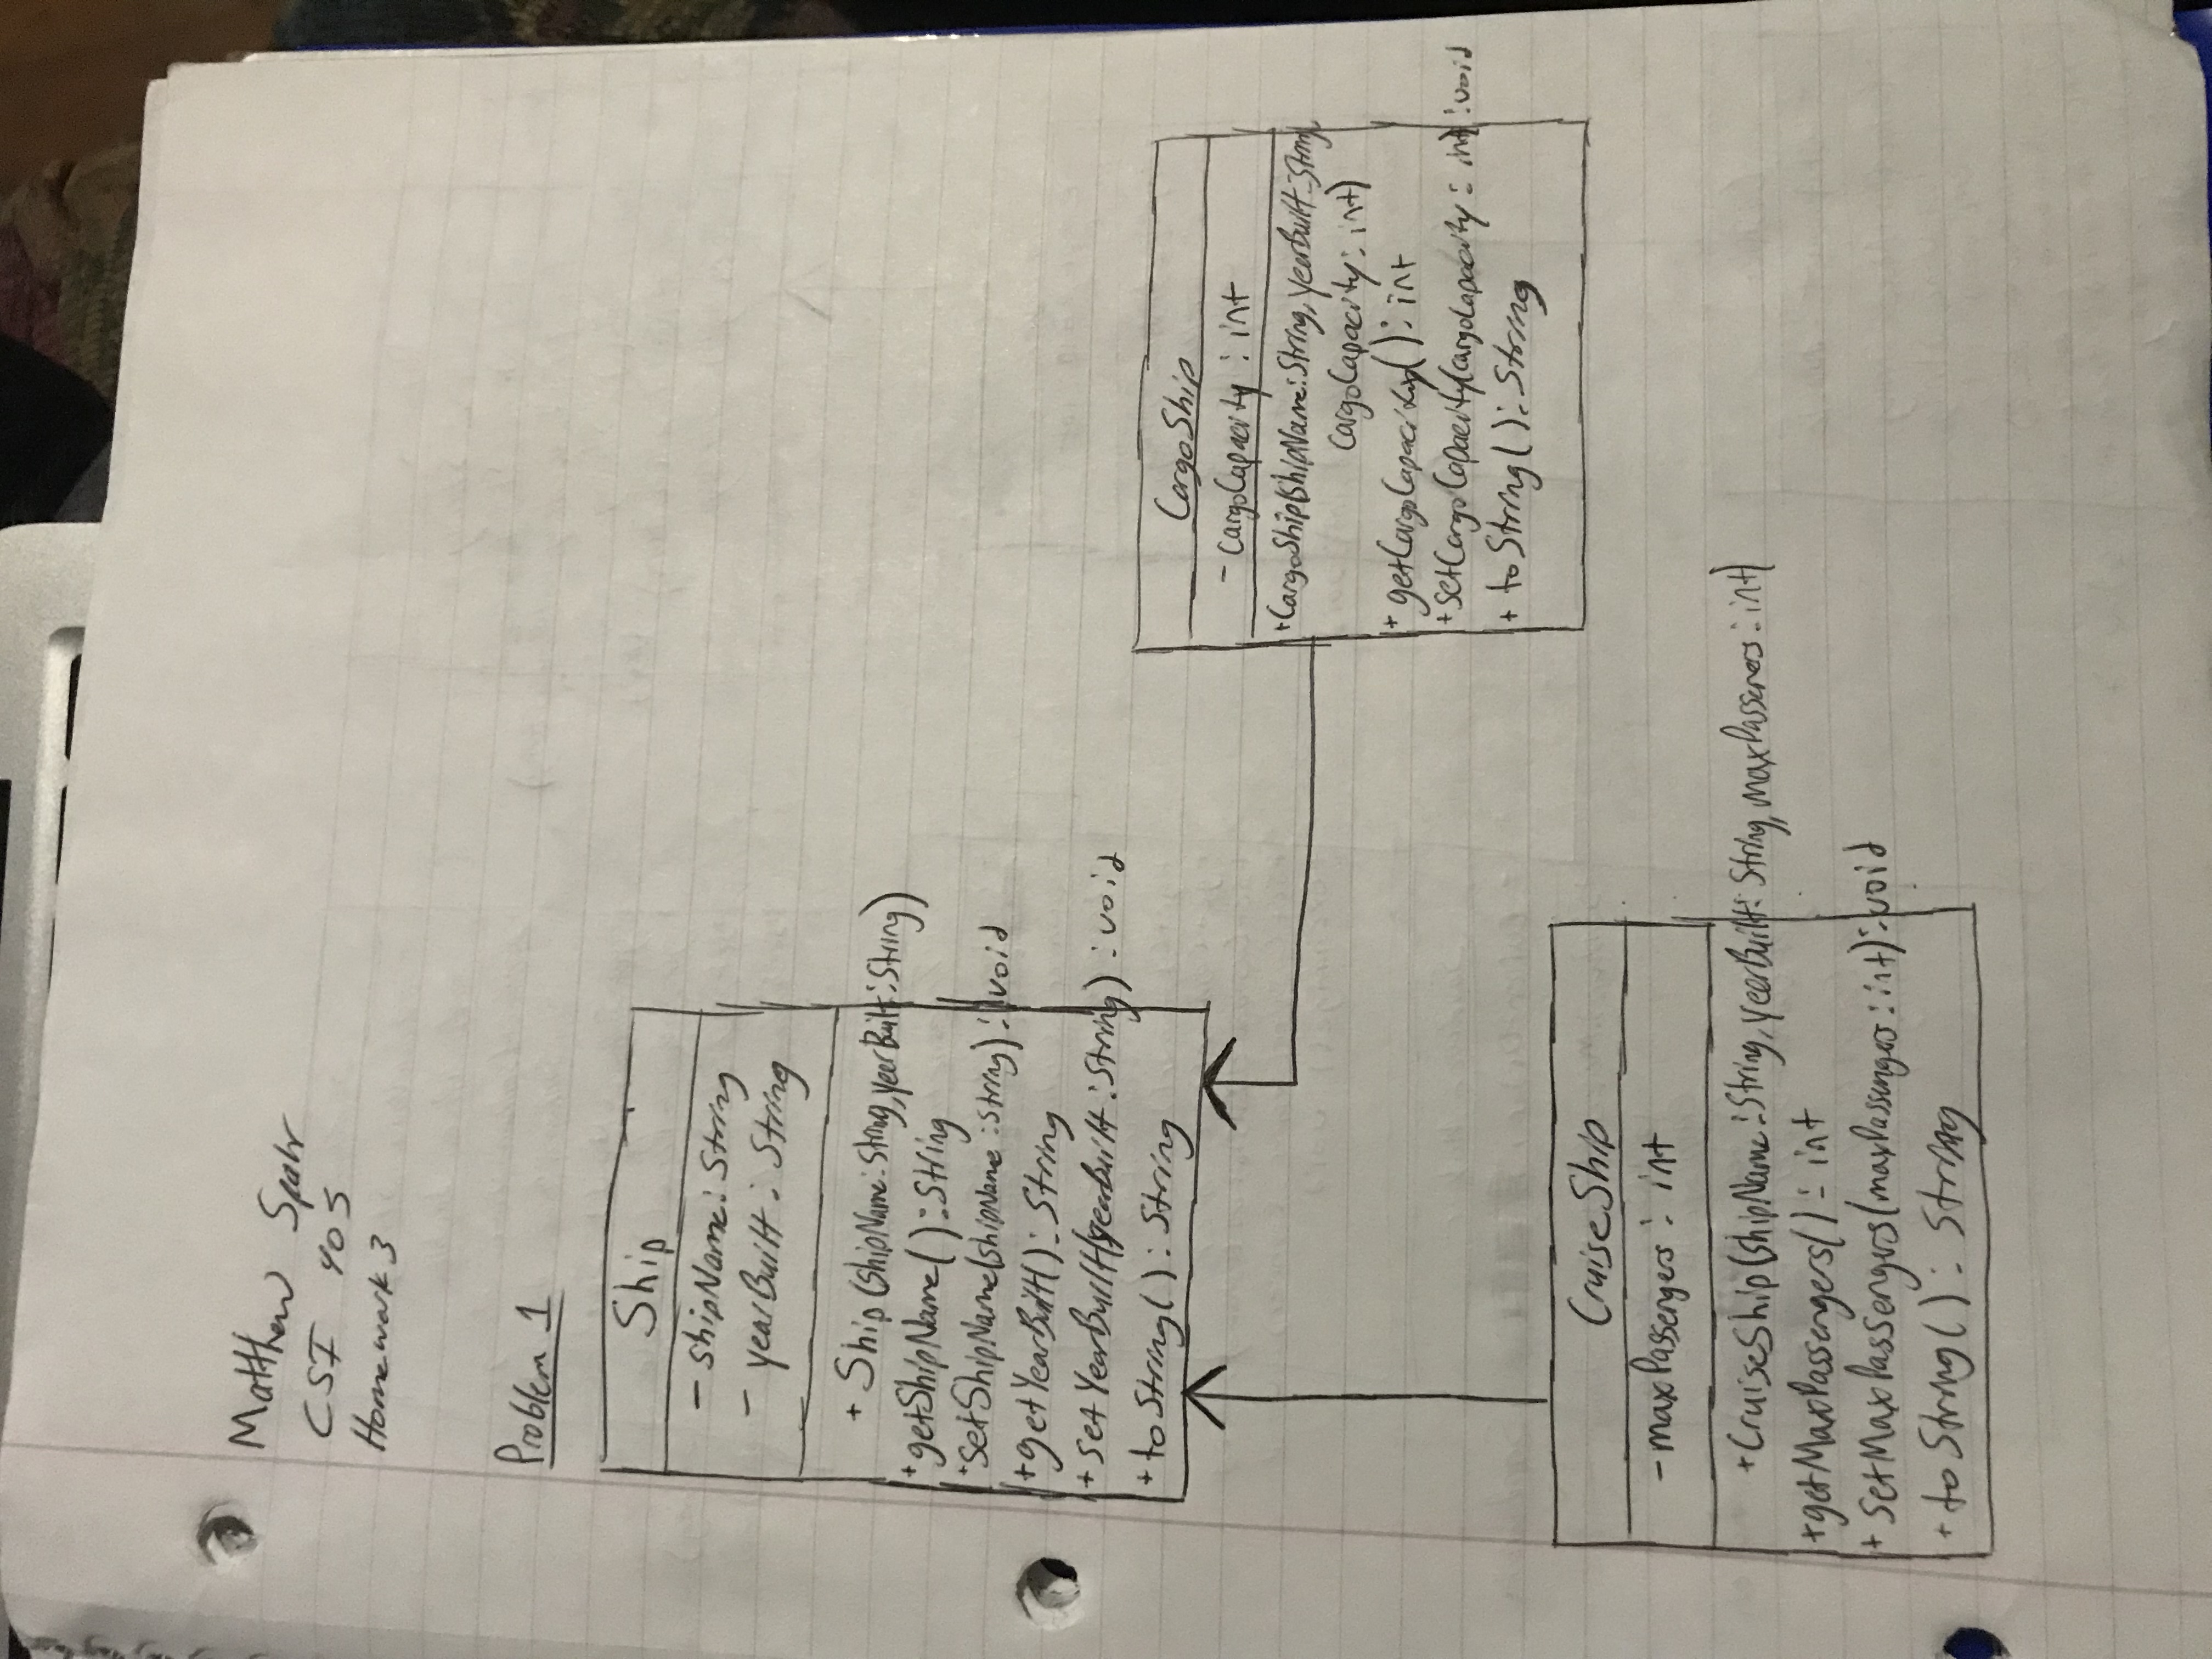 Matthew Spahr
CSI 405
Homework 3
Problem 1
Ship
- shipName : String
- yearBuilt : String
+ Ship(shipName : String, yearBuilt : String)
+ getShipName() : String
+ setShipName(shipName : String) : void
+ getYearBuilt() : String
+ setYearBuilt(yearBuilt : String) : void
+ toString() : String
CruiseShip
- maxPassengers : int
+ CruiseShip(shipName : String, yearBuilt : String, maxPassengers : int)
+ getMaxPassengers() : int
+ setMaxPassengers(maxPassengers : int) : void
+ toString() : String
CargoShip
- CargoCapacity : int
+ CargoShip(shipName : String, yearBuilt : String,
CargoCapacity : int)
+ getCargoCapacity() : int
+ setCargoCapacity(CargoCapacity : int) : void
+ toString() : String